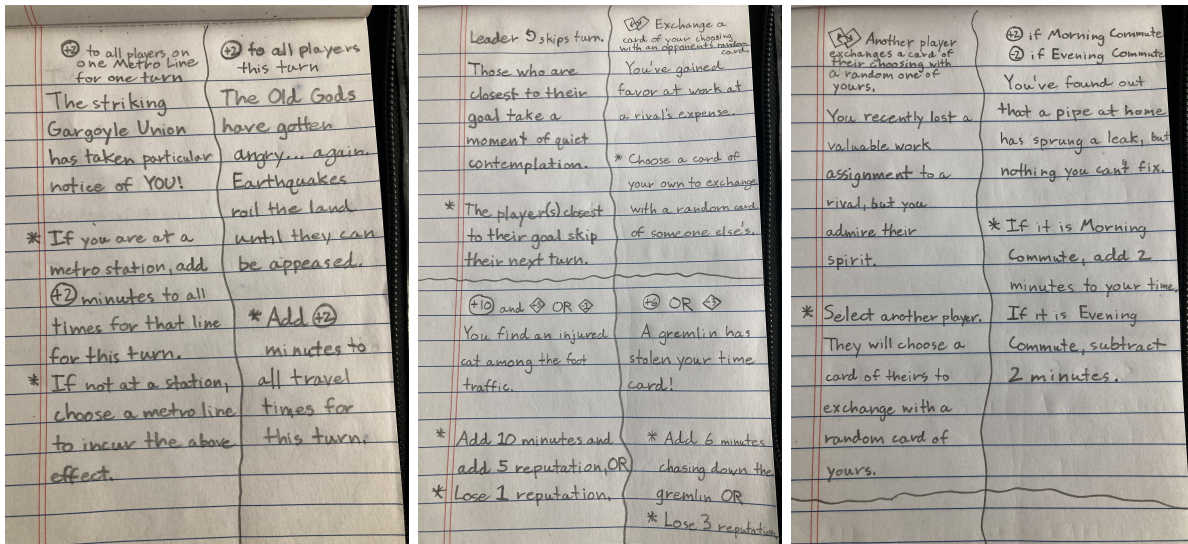 +2 to all players on
one Metro Line
for one turn
The striking
Gargoyle Union
has taken particular
notice of YOU!
* If you are at a
metro station, add
+2 minutes to all
times for that line
for this turn.
* If not at a station,
choose a metro line
to incur the above
effect.
+2 to all players
this turn
The Old Gods
have gotten
angry... again.
Earthquakes
roil the land
until they can
be appeased.
* Add +2
minutes to
all travel
times for
this turn.
Leader skips turn.
Those who are
closest to their
goal take a
moment of quiet
contemplation.
* The player(s) closest
to their goal skip
their next turn.
Exchange a
card of your choosing
with an opponent's random
card.
You've gained
favor at work at
a rival's expense.
* Choose a card of
your own to exchange
with a random card
of someone else's.
+10 and +5 OR -1
You find an injured
cat among the foot
traffic.
* Add 10 minutes and
add 5 reputation, OR
* Lose 1 reputation.
+6 OR -3
A gremlin has
stolen your time
card!
* Add 6 minutes
chasing down the
gremlin OR
* Lose 3 reputation
Another player
exchanges a card of
their choosing with
a random one of
yours.
You recently lost a
valuable work
assignment to a
rival, but you
admire their
spirit.
* Select another player.
They will choose a
card of theirs to
exchange with a
random card of
yours.
+2 if Morning Commute
-2 if Evening Commute
You've found out
that a pipe at home
has sprung a leak, but
nothing you can't fix.
* If it is Morning
Commute, add 2
minutes to your time.
If it is Evening
Commute, subtract
2 minutes.